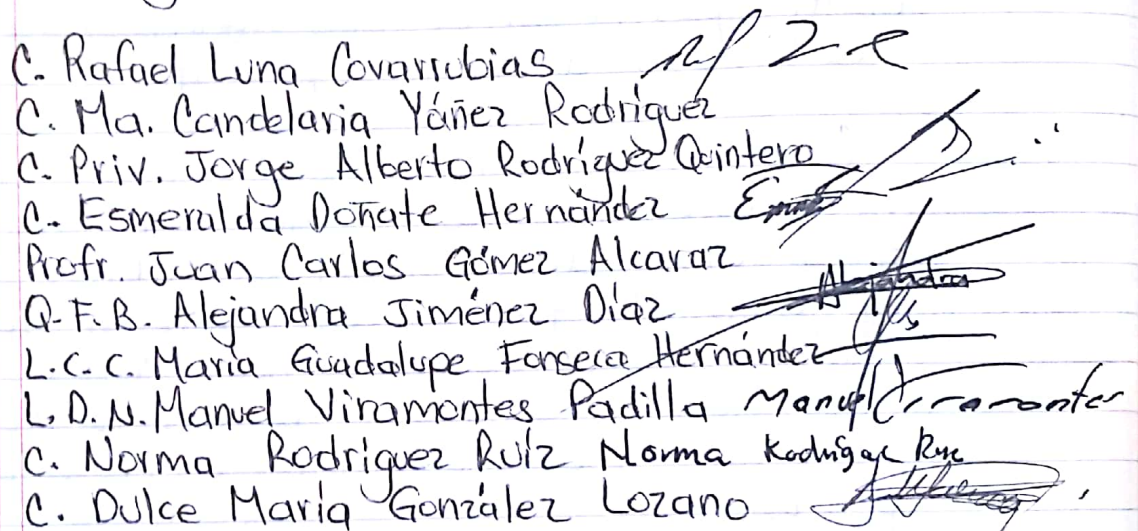 C. Rafael Luna Covarrubias
C. Ma. Candelaria Yáñez Rodríguez
C. Priv. Jorge Alberto Rodríguez Quintero
C. Esmeralda Doñate Hernández
Profr. Juan Carlos Gómez Alcaraz
Q.F.B. Alejandra Jiménez Díaz Alejandra
L.C.C. María Guadalupe Fonseca Hernández
L.D.N. Manuel Viramontes Padilla Manuel Viramontes
C. Norma Rodríguez Ruíz Norma Rodríguez Ruiz
C. Dulce María González Lozano